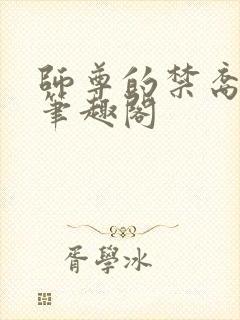 師尊的禁裔
筆趣閣
胥學冰